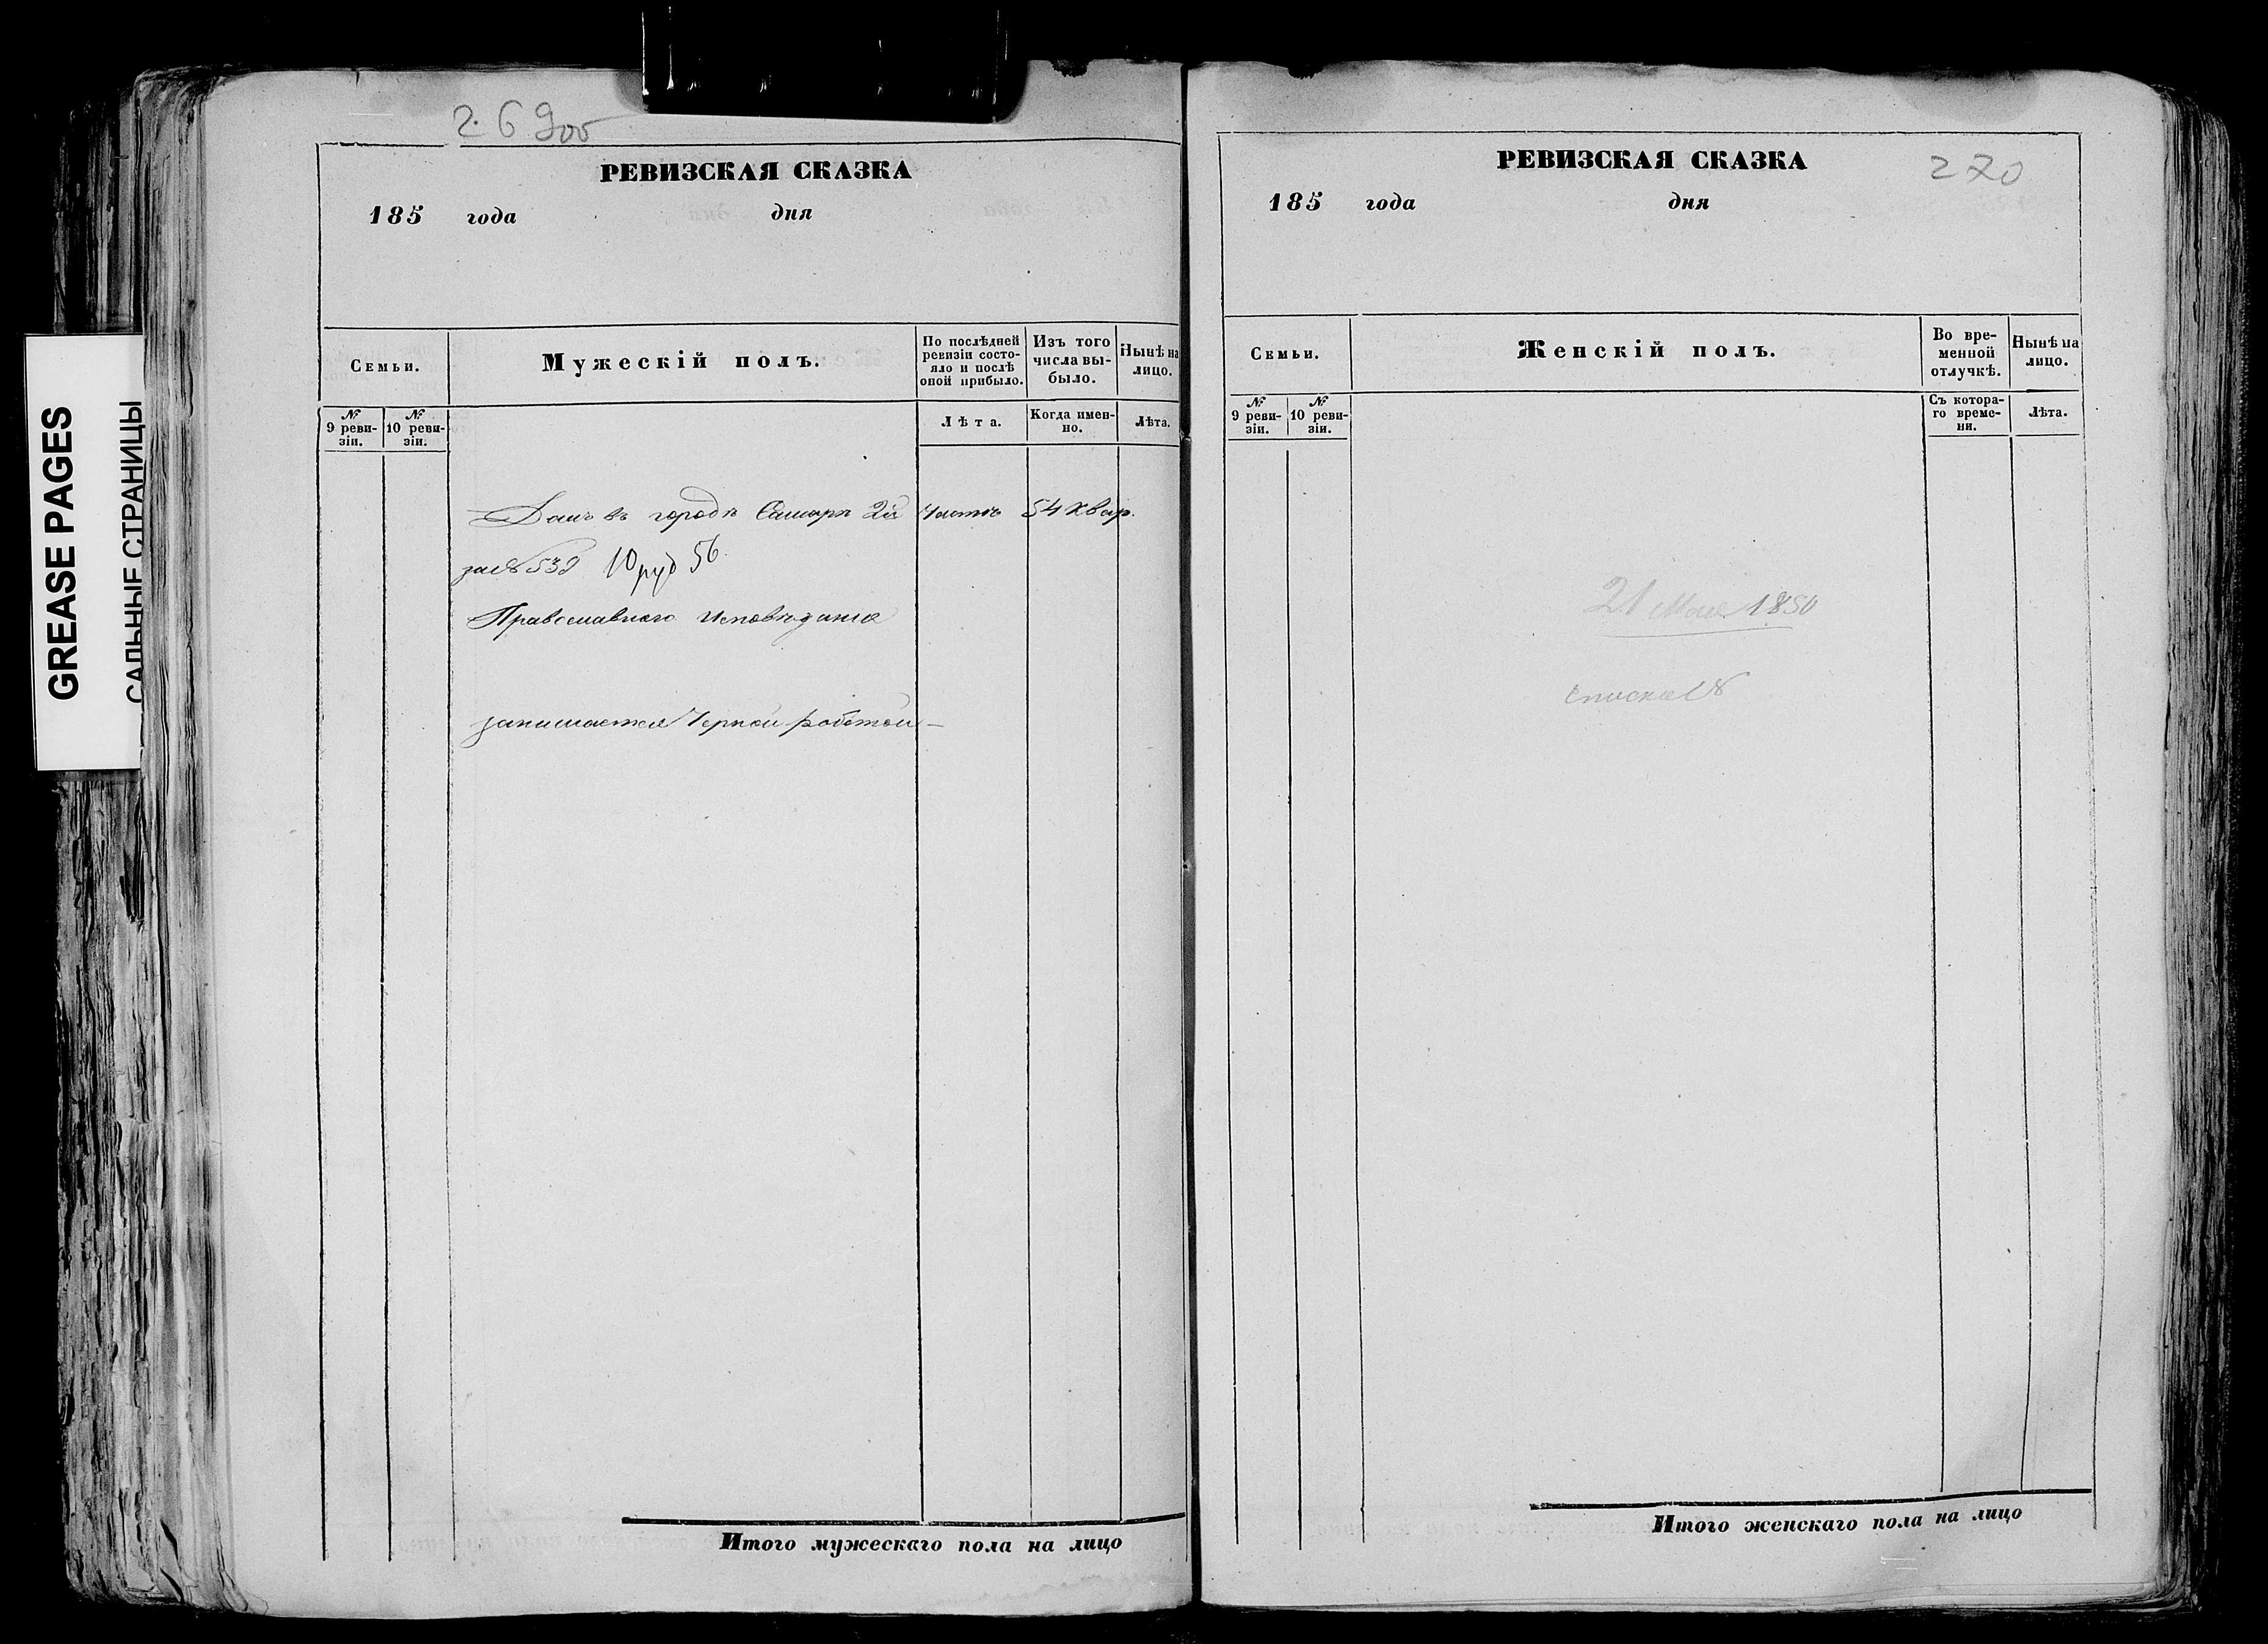 GREASE PAGES
САЛЬНЫЕ СТРАНИЦЫ
269об
РЕВИЗСКАЯ СКАЗКА
185 года дня
Семьи.
Мужескій полъ.
По послѣдней ревизіи состояло и послѣ оной прибыло.
Изъ того числа выбыло.
Нынѣ на лицо.
№ 9 ревизіи.
№ 10 ревизіи.
Лѣта.
Когда именно.
Лѣта.
Домъ въ городѣ Самарѣ 2й части 54 квар.
за № 539 10 руб 56
Православнаго исповѣданія
занимается Черной работой
Итого мужескаго пола на лицо
РЕВИЗСКАЯ СКАЗКА
270
185 года дня
Семьи.
Женскій полъ.
Во временной отлучкѣ.
Нынѣ на лицо.
№ 9 ревизіи.
№ 10 ревизіи.
Съ котораго времени.
Лѣта.
21 Мая 1850
списка №
Итого женскаго пола на лицо